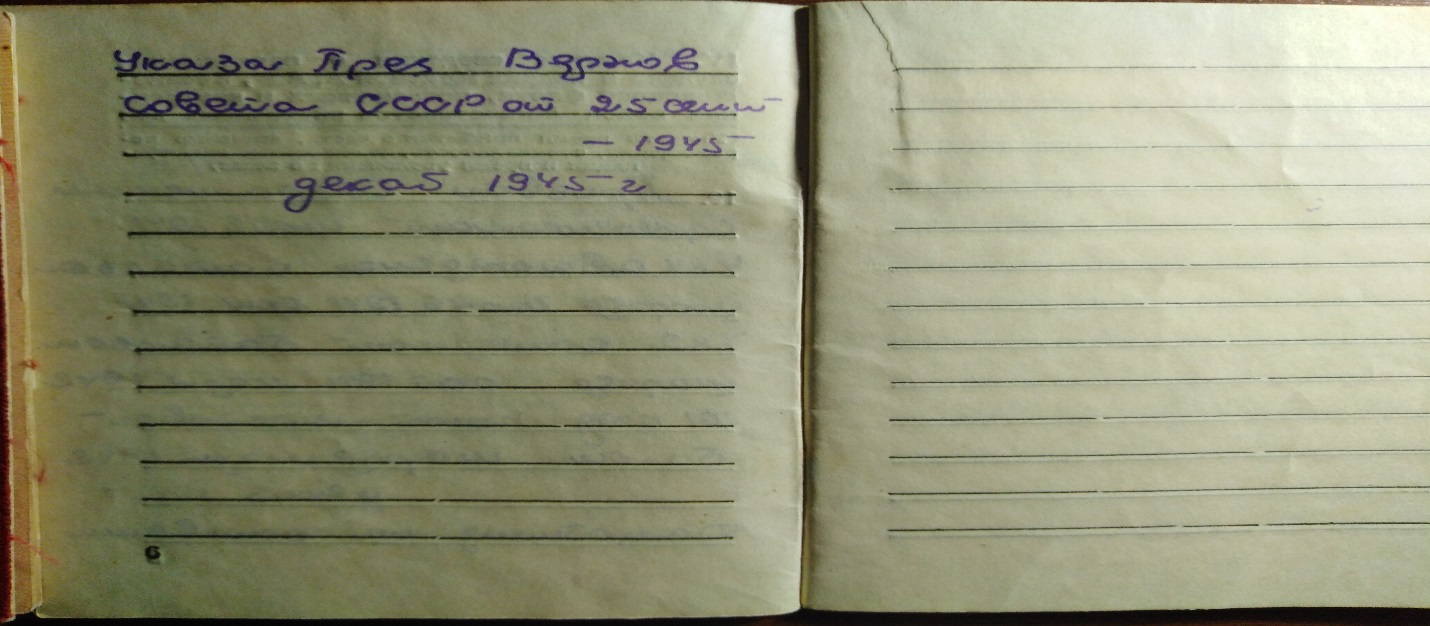 Указа През Верхов
совета СССР от 25 сент
- 1945
декаб 1945 г
6